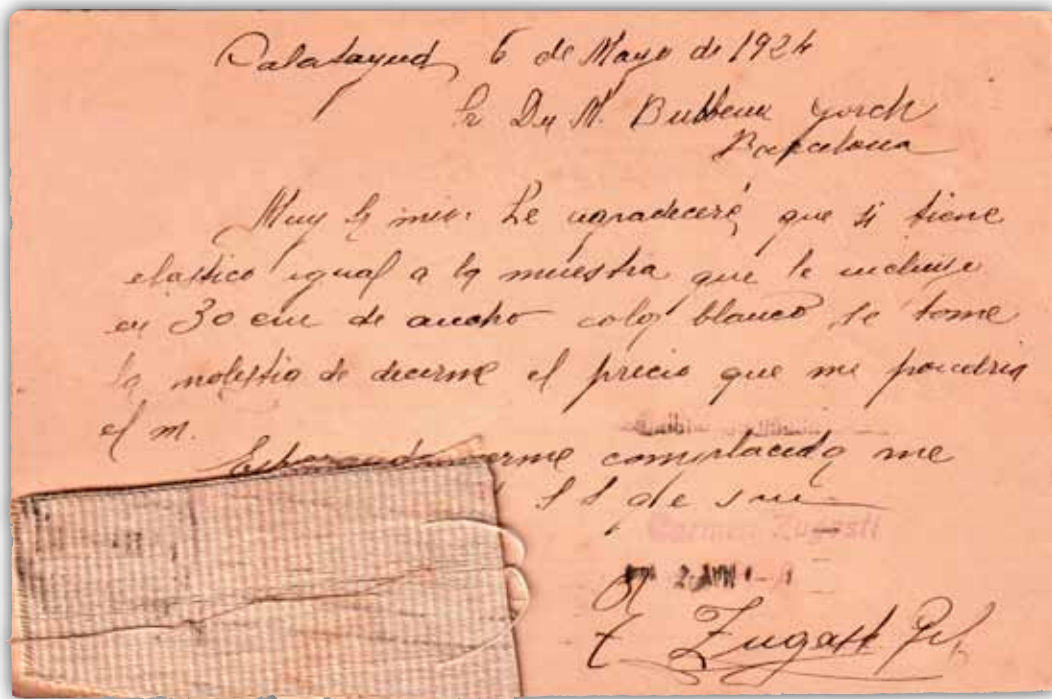 Calatayud 6 de Mayo de 1924
Sr Dn M. Bubbena
Barcelona
Muy Sr mio: Le agradeceré, que si tiene
elastico igual a la muestra que le incluyo
en 30 cm de ancho color blanco se tome
la molestia de decirme el precio que me pondria
el m.
Esperando verme complacida me
S S q e s m
Carmen Zugasti
Zugasti